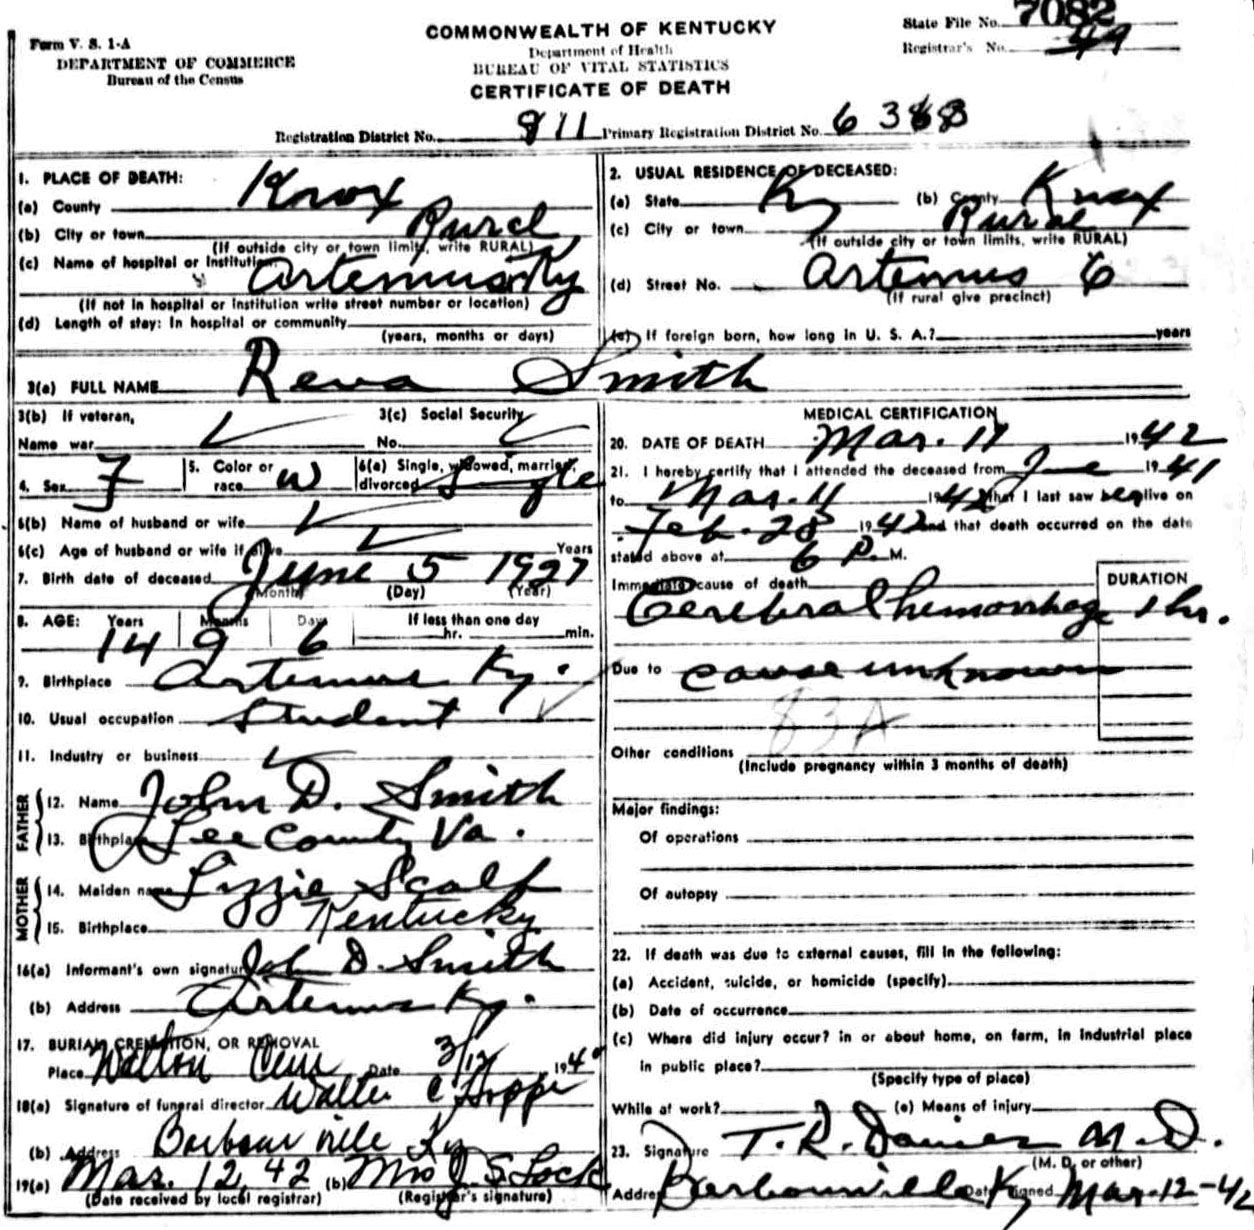 State File No. 7082
Form V. S. 1-A
COMMONWEALTH OF KENTUCKY
Registrar's No. 49
DEPARTMENT OF COMMERCE
Department of Health
Bureau of the Census
BUREAU OF VITAL STATISTICS
CERTIFICATE OF DEATH
Registration District No. 911 Primary Registration District No. 6368
1. PLACE OF DEATH:
(a) County Knox
(b) City or town Rural
(If outside city or town limits, write RURAL)
(c) Name of hospital or institution Artemus Ky
(If not in hospital or institution write street number or location)
(d) Length of stay: In hospital or community
(years, months or days)
2. USUAL RESIDENCE OF DECEASED:
(a) State Ky (b) County Knox
(c) City or town Rural
(If outside city or town limits, write RURAL)
(d) Street No. Artemus 6
(If rural give precinct)
(e) If foreign born, how long in U. S. A.? years
3(a) FULL NAME Reva Smith
3(b) If veteran, 3(c) Social Security
Name war No.
4. Sex F 5. Color or race W 6(a) Single, widowed, married, divorced Single
6(b) Name of husband or wife
6(c) Age of husband or wife if alive Years
7. Birth date of deceased June 5 1927
(Month) (Day) (Year)
8. AGE: Years Months Days If less than one day
14 9 6 hr. min.
9. Birthplace Artemus Ky.
10. Usual occupation Student
11. Industry or business
FATHER
12. Name John D. Smith
13. Birthplace Lee County Va.
MOTHER
14. Maiden name Lizzie Scalf
15. Birthplace Kentucky
16(a) Informant's own signature John D. Smith
(b) Address Artemus Ky.
17. BURIAL, CREMATION, OR REMOVAL
Place Walton Cem Date 3/12 194
18(a) Signature of funeral director Walter C Hopper
(b) Address Barbourville Ky
19(a) Mar. 12, 42 (b) Mrs J. S. Lock
(Date received by local registrar) (Registrar's signature)
MEDICAL CERTIFICATION
20. DATE OF DEATH Mar. 11 1942
21. I hereby certify that I attended the deceased from June 1941
to Mar. 11 1942 that I last saw her alive on
Feb. 28 1942 and that death occurred on the date
stated above at 6 P. M.
Immediate cause of death DURATION
Cerebral hemorrhage 1 hr.
Due to cause unknown
83A
Other conditions
(Include pregnancy within 3 months of death)
Major findings:
Of operations
Of autopsy
22. If death was due to external causes, fill in the following:
(a) Accident, suicide, or homicide (specify)
(b) Date of occurrence
(c) Where did injury occur? in or about home, on farm, in industrial place
in public place?
(Specify type of place)
While at work? (e) Means of injury
23. Signature T. R. Davies M.D.
(M. D. or other)
Address Barbourville Ky Date signed Mar-12-42